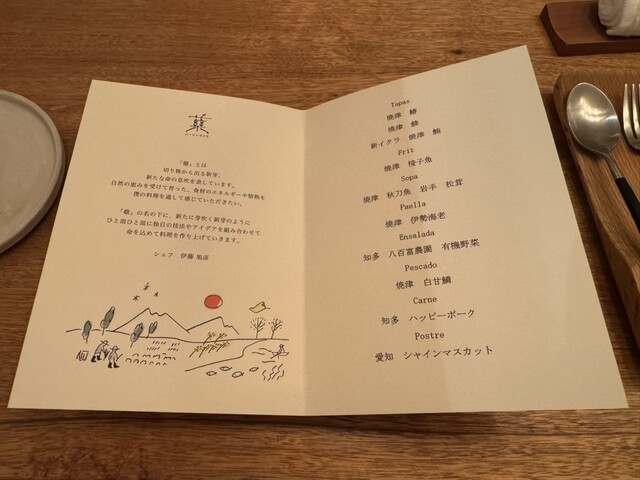 蘖
「蘖」とは
切り株から出る新芽。
新たな命の息吹を表しています。
自然の恵みを受けて育った、食材のエネルギーや情熱を
僕の料理を通して感じていただきたい。
「蘖」の名の下に、新たに芽吹く新芽のように
ひと皿ひと皿に独自の技法やアイデアを組み合わせて
命を込めて料理を作り上げていきます。
シェフ 伊藤
Tapas
焼津
焼津
新イクラ 焼津
Frit
焼津 梭子魚
Sopa
焼津 秋刀魚 岩手 松茸
Paella
焼津 伊勢海老
Ensalada
知多 八百富農園 有機野菜
Pescado
焼津 白甘鯛
Carne
知多 ハッピーポーク
Postre
愛知 シャインマスカット